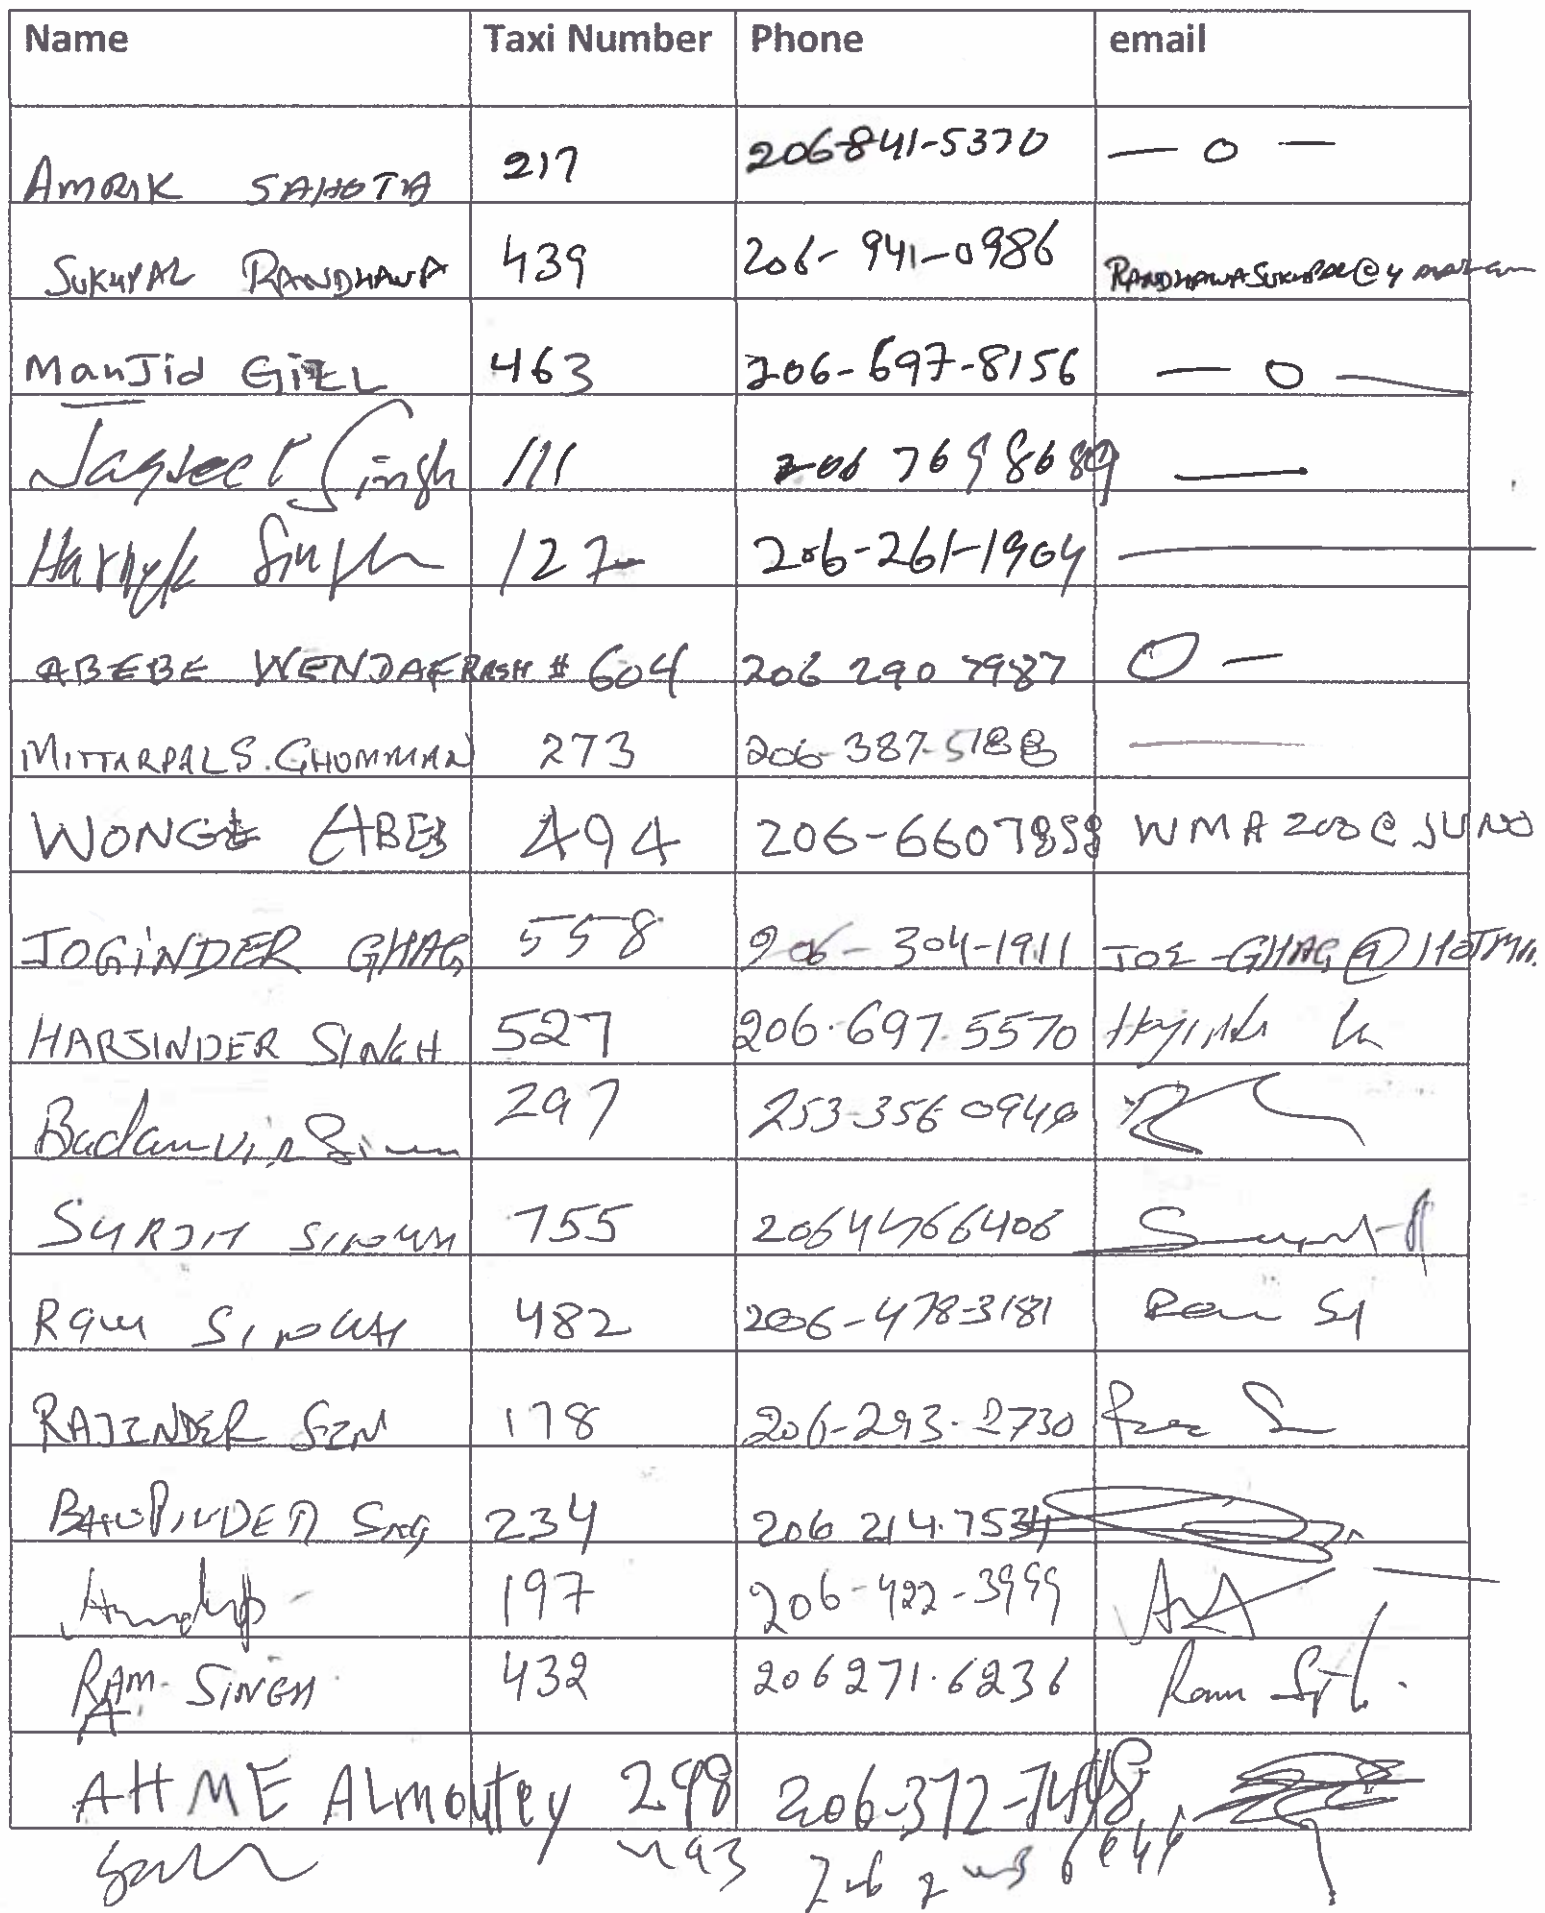 Name Taxi Number Phone email
AMRIK SAHOTA 217 206-841-5370 — 0 —
SUKHPAL RANDHAWA 439 206-941-0986
ManJid GILL 463 206-697-8156 — 0 —
Jagjeet Singh 111 206 769 8689 —
Singh 127 206-261-1904 —
ABEBE WENDAFRASH # 604 206 290 7987 0 —
MITTARPAL S. GHOMMAN 273 206-387-5188 —
WONGE ABEB 494 206-6607858 WMA200@JUNO
JOGINDER GHAG 558 206-304-1911 JOE-GHAG@HOTMA
HARJINDER SINGH 527 206.697.5570
297 253-356-0940
SURJIT SINGH 755 2064466406
Ram SINGH 482 206-478-3181
RAJINDER SIN 178 206-293-2730
BHUPINDER SNG 234 206 214.7534
197 206-422-3999
RAM SINGH 432 206271.6236 Ram
AHME ALmoutey 298 206-372-7448